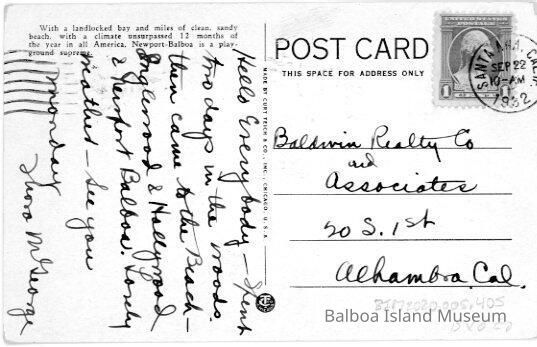 With a landlocked bay and miles of clean, sandy
beach, with a climate unsurpassed 12 months of
the year in all America, Newport-Balboa is a play-
ground supreme.
Hello Everybody - Spent
two days in the woods
then came to the Beach -
Inglewood & Hollywood
& Newport Balboa. Lovely
Weather - See you
Monday
McGeorge
MADE BY CURT TEICH & CO., INC., CHICAGO, U.S.A.
POST CARD
THIS SPACE FOR ADDRESS ONLY
UNITED STATES POSTAGE
1 1
SANTA ANA, CALIF.
SEP 22
10-AM
1932
Baldwin Realty Co
and
Associates
20 S. 1st
Alhambra, Cal.
Balboa Island Museum